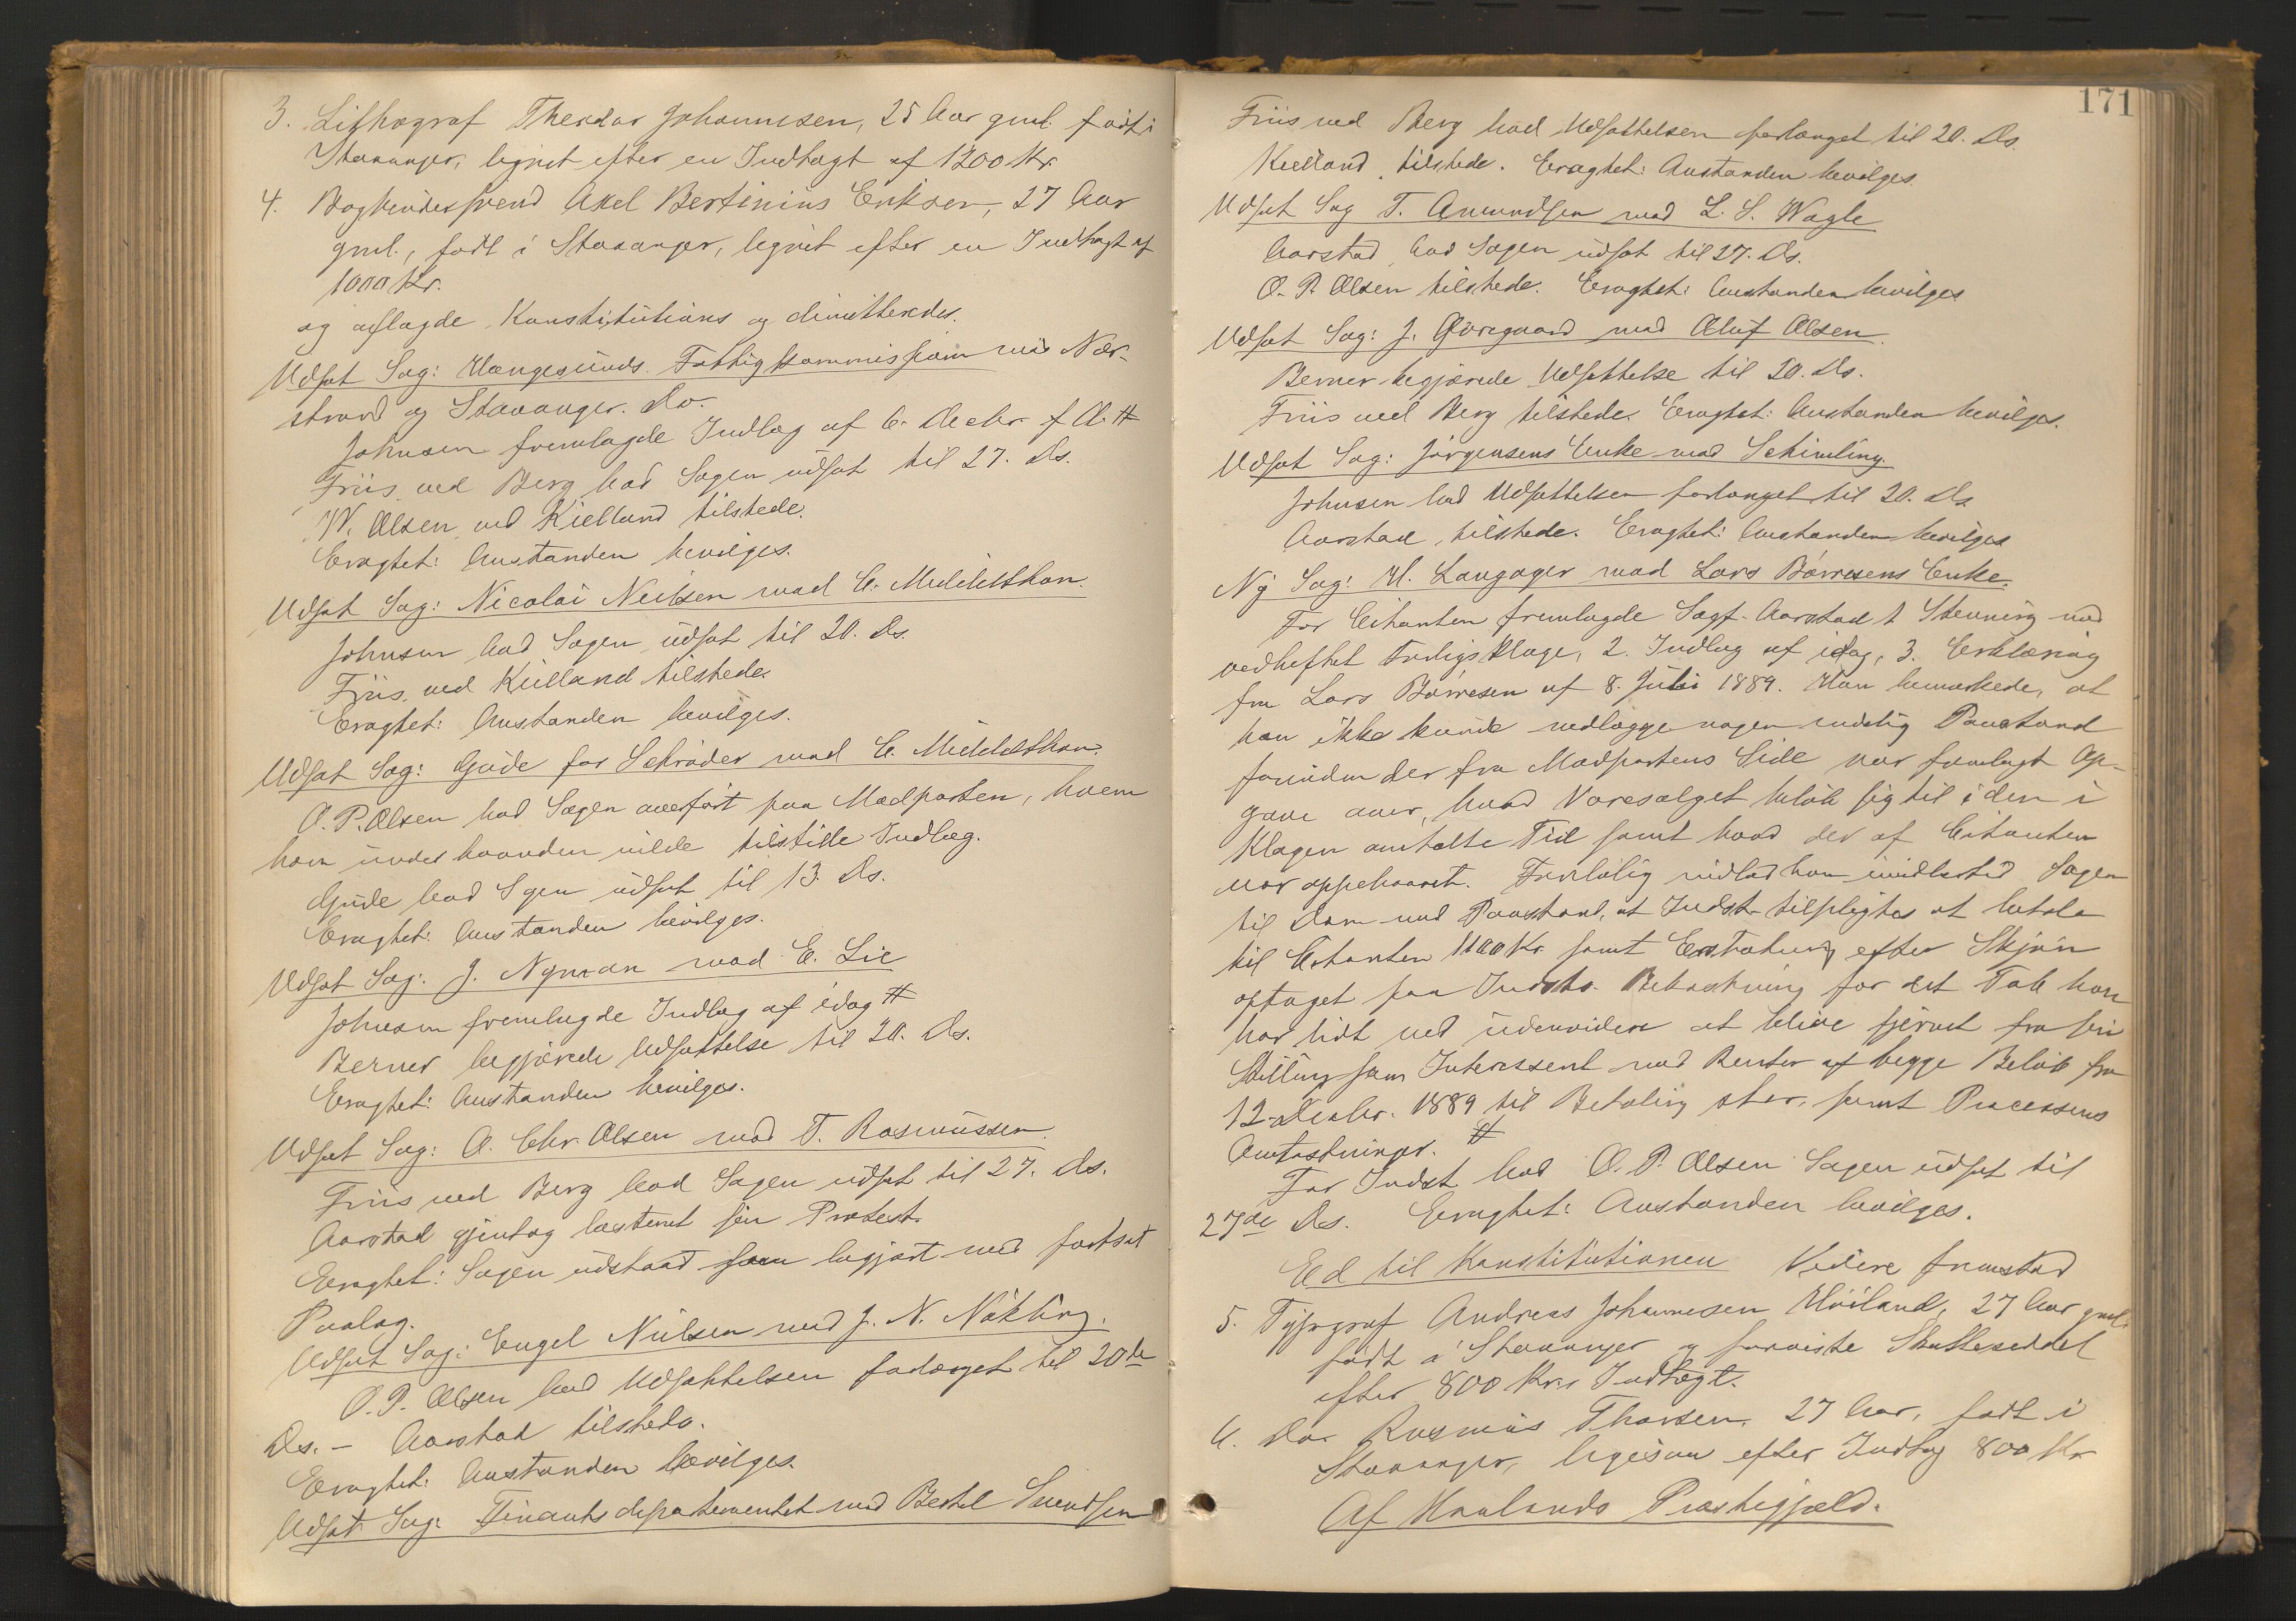 3. Lithograf Theodor Johannesen, 25 Aar gml. født i
Stavanger, lignet efter en Indtægt af 1200 Kr.
4. Bogbindersvend Axel Bertinius Eriksen, 27 Aar
gml., født i Stavanger, lignet efter en Indtægt af
1000 Kr.
og aflagde Konstitutions og dimitteredes.
Udsat Sag: Haugesunds Fattigkommission mod Nær-
strand og Stavanger. Do.
Johnsen fremlagde Indlæg af 6. Decbr. f. A. #
Friis ved Berg bad Sagen udsat til 27. Ds.
W. Olsen ved Kielland tilstede.
Eragtet: Anstanden bevilges.
Udsat Sag: Nicolai Neilsen mod C. Middelthon.
Johnsen bad Sagen udsat til 20. Ds.
Friis ved Kielland tilstede.
Eragtet: Anstanden bevilges.
Udsat Sag: Gude for Schrøder mod C. Middelthon.
O. P. Olsen bad Sagen overført paa Modparten, hvem
han underhaanden vilde tilstille Indlæg.
Gude bad Sgen udsat til 13. Ds.
Eragtet: Anstanden bevilges.
Udsat Sag: J. Nyman mod E. Lie
Johnsen fremlagde Indlæg af idag #
Berner begjærede Udsættelse til 20. Ds.
Eragtet: Anstanden bevilges.
Udsat Sag: A. Chr. Olsen mod T. Rasmussen.
Friis ved Berg bad Sagen udsat til 27. Ds.
Aarstad gjentog bestemt sin Protest.
Eragtet: Sagen udstaar som begjært med fortsat
Paalæg.
Udsat Sag: Engel Nielsen mod J. N. Nökling.
O. P. Olsen bad Udsættelsen forlænget til 20de
Ds. - Aarstad tilstede.
Eragtet: Anstanden bevilges.
Udsat Sag: Finantsdepartementet mod Bertel Svendsen
171
Friis ved Berg bad Udsættelsen forlænget til 20. Ds.
Kielland tilstede. Eragtet: Anstanden bevilges.
Udsat Sag T. Amundsen mod L. S. Wagle
Aarstad bad Sagen udsat til 27. Ds.
O. P. Olsen tilstede. Eragtet: Anstanden bevilges
Udsat Sag: J. Gjøregaard mod Oluf Olsen.
Berner begjærede Udsættelse til 20. Ds.
Friis ved Berg tilstede. Eragtet: Anstanden bevilges.
Udsat Sag: Jørgensens Enke mod Schimling.
Johnsen bad Udsættelsen forlænget til 20. Ds.
Aarstad tilstede. Eragtet: Anstanden bevilges
Ny Sag: H. Langager mod Lars Børresens Enke.
For Citanten fremlagde Sagf. Aarstad 1 Stevning med
vedheftet Forligsklage, 2. Indlæg af idag, 3. Erklæring
fra Lars Børresen af 8. Juli 1889. Han bemærkede, at
han ikke kunde nedlægge nogen endelig Paastand
forinden der fra Modpartens Side var fremlagt Op-
gave over, hvad Varesalget beløb sig til i den i
Klagen omtalte Tid samt hvad der af Citanten
var oppebaaret. Foreløbig indlod han imidlertid Sagen
til Dom med Paastand, at Indst. tilpligtes at betale
til Citanten 1100 Kr. samt Erstatning efter Skjøn
optaget paa Indsts. Bekostning for det Tab han
har lidt ved udenvidere at blive fjernet fra sin
Stilling som Interessent med Renter af begge Beløb fra
12. Decbr. 1889 til Betaling sker, samt Processens
Omkostninger. #
For Indst. bad O. P. Olsen Sagen udsat til
27de Ds. Eragtet: Anstanden bevilges.
Ed til Konstitutionen Videre fremstod
5. Typograf Andreas Johannesen Høiland, 27 Aar gml.
født i Stavanger og foreviste Skatteseddel
efter 800 Krs Indtægt.
6. Do. Rasmus Thorsen, 27 Aar, født i
Stavanger, ligesaa efter Indtæg 800 Kr.
Af Haalands Præstegjæld.